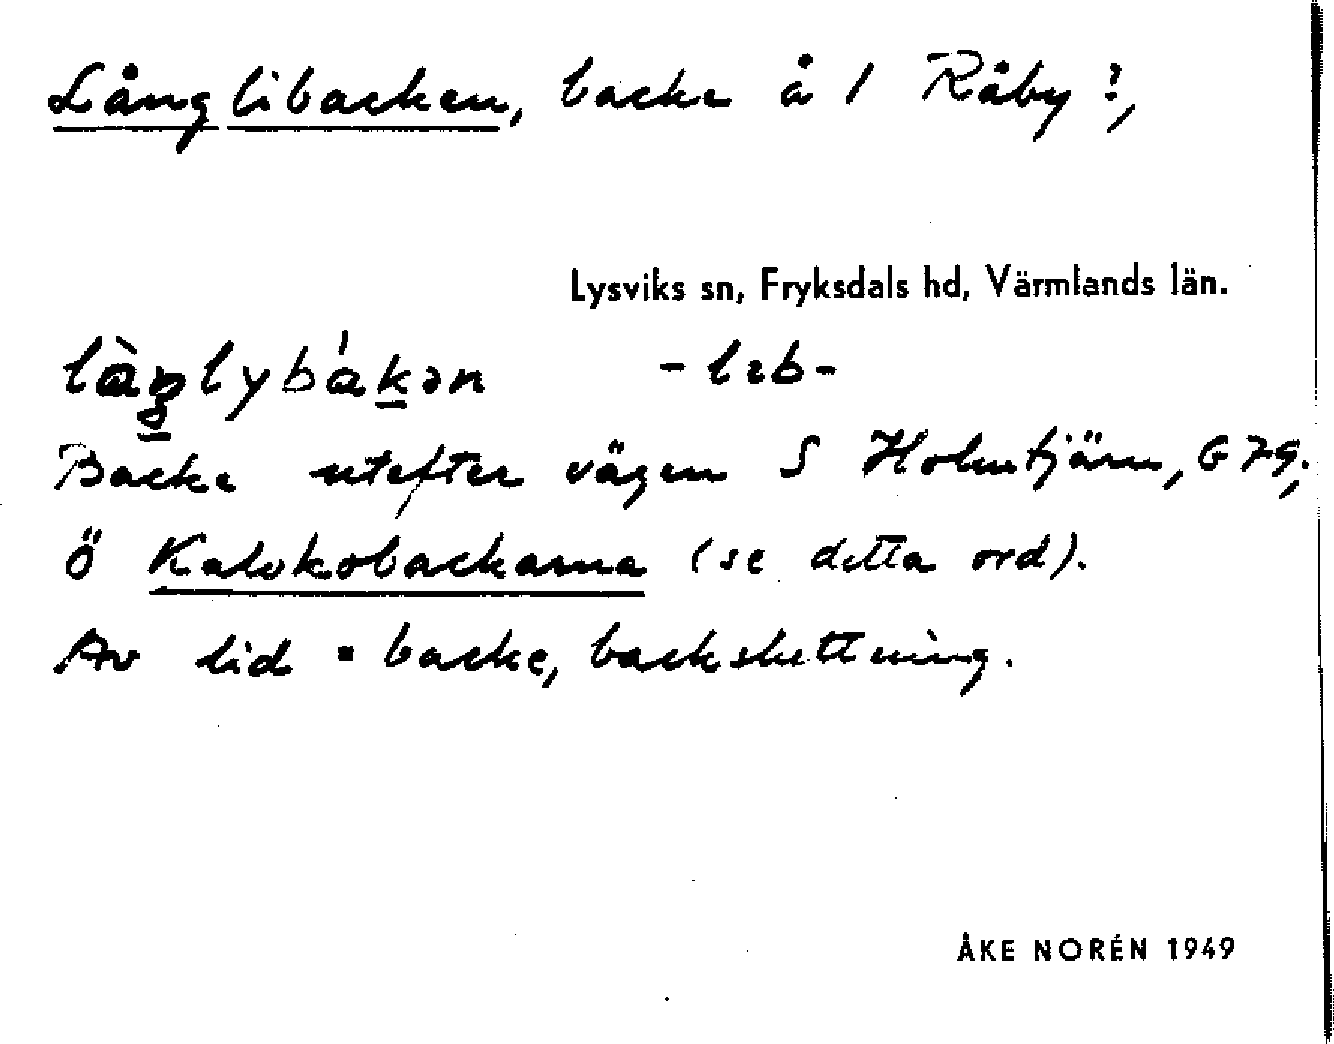 Långlibacken, backe å 1 Råby?,
Lysviks sn, Fryksdals hd, Värmlands län.
Backe utefter vägen S Holmtjärn, G 79;
Ö Kalvkobackarna (se detta ord).
Av lid = backe, backsluttning.
ÅKE NORÉN 1949